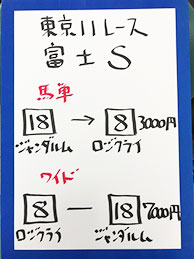 東京11レース
富士S
馬単
18 → 8 3000円
ジャンダルム ロジクライ
ワイド
8 — 18 7000円
ロジクライ ジャンダルム